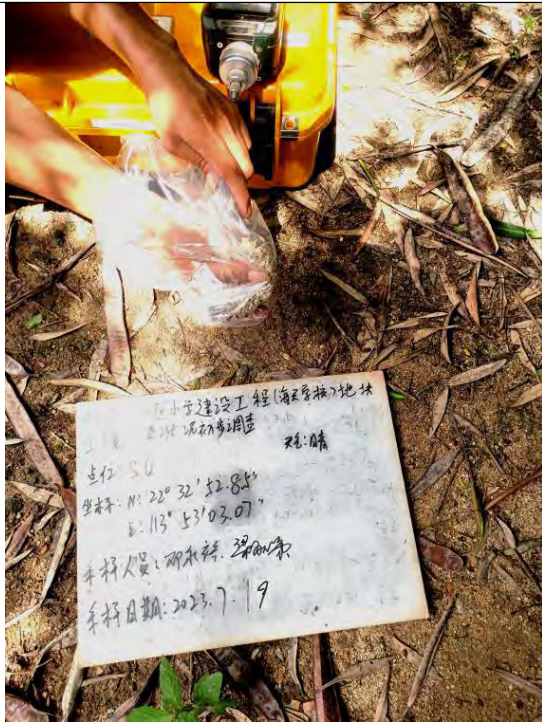 小学建设工程(海天学校)地块
状况初步调查
天气:晴
点位 S4
坐标: N: 22° 32' 52.85"
E: 113° 53' 03.07"
采样人员:
采样日期: 2023.7.19